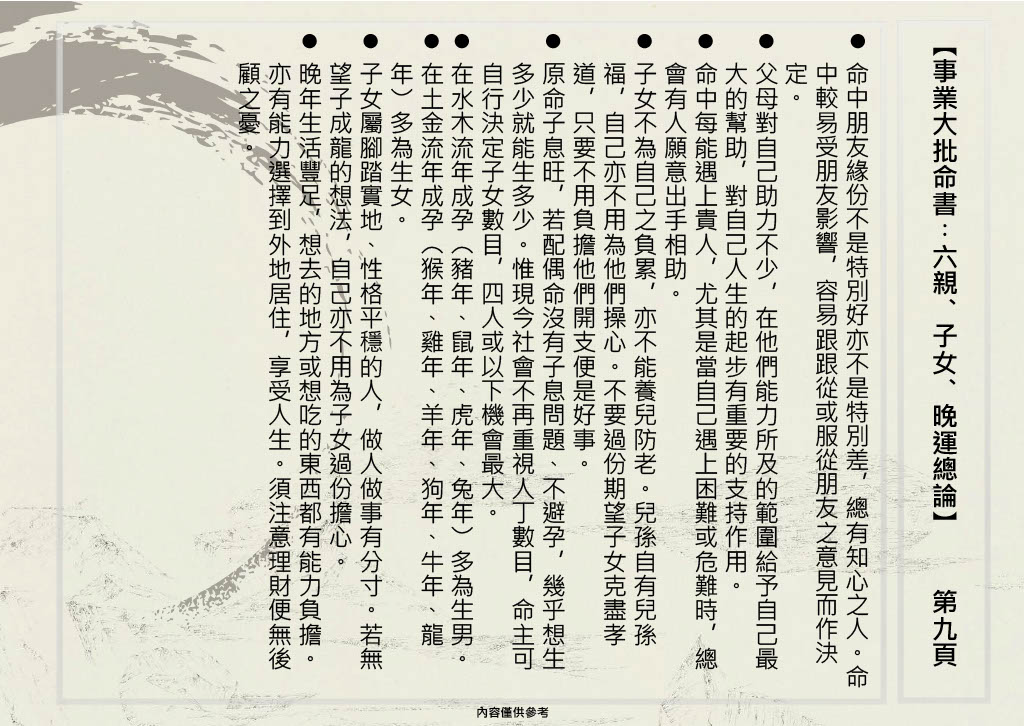 【事業大批命書：六親、子女、晚運總論】 第九頁
● 命中朋友緣份不是特別好亦不是特別差，總有知心之人。命
中較易受朋友影響，容易跟跟從或服從朋友之意見而作決
定。
● 父母對自己助力不少，在他們能力所及的範圍給予自己最
大的幫助，對自己人生的起步有重要的支持作用。
● 命中每能遇上貴人，尤其是當自己遇上困難或危難時，總
會有人願意出手相助。
● 子女不為自己之負累，亦不能養兒防老。兒孫自有兒孫
福，自己亦不用為他們操心。不要過份期望子女克盡孝
道，只要不用負擔他們開支便是好事。
● 原命子息旺，若配偶命沒有子息問題、不避孕，幾乎想生
多少就能生多少。惟現今社會不再重視人丁數目，命主可
自行決定子女數目，四人或以下機會最大。
● 在水木流年成孕（豬年、鼠年、虎年、兔年）多為生男。
● 在土金流年成孕（猴年、雞年、羊年、狗年、牛年、龍
年）多為生女。
● 子女屬腳踏實地、性格平穩的人，做人做事有分寸。若無
望子成龍的想法，自己亦不用為子女過份擔心。
● 晚年生活豐足，想去的地方或想吃的東西都有能力負擔。
亦有能力選擇到外地居住，享受人生。須注意理財便無後
顧之憂。
內容僅供參考